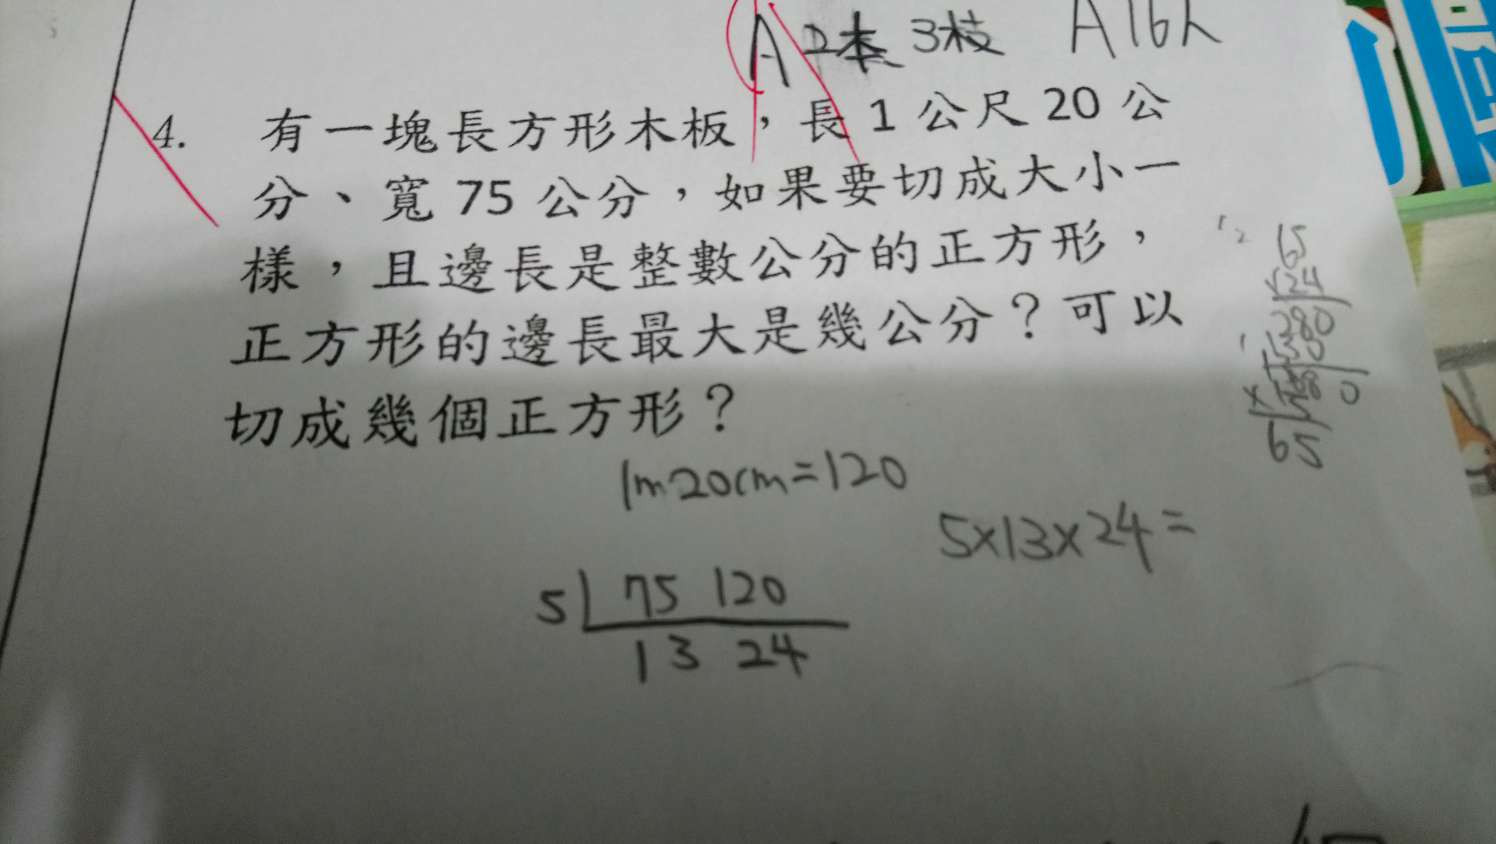 A 2本 3枝 A 16人
4. 有一塊長方形木板，長 1 公尺 20 公
分、寬 75 公分，如果要切成大小一
樣，且邊長是整數公分的正方形，
正方形的邊長最大是幾公分？可以
切成幾個正方形？
1m20cm=120
5×13×24=
5 75 120
13 24
65
×24
65